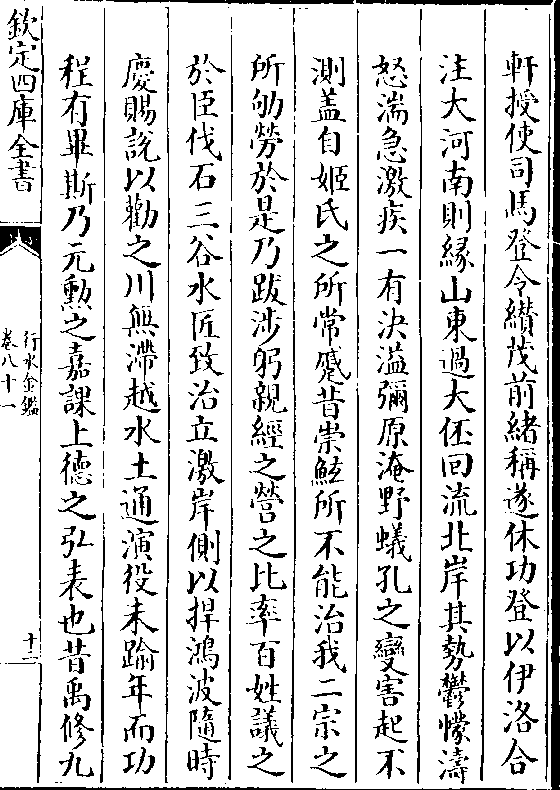 軒授使司馬登令纘茂前緒稱遂休功登以伊洛合
注大河南則緣山東過大伾回流北岸其勢鬱懞濤
怒湍急激疾一有決溢彌原淹野蟻孔之變害起不
測蓋自姬氏之所常蹙昔崇鯀所不能治我二宗之
所劬勞於是乃跋涉躬親經之營之比率百姓議之
於臣伐石三谷水匠致治立激岸側以捍鴻波隨時
慶賜說以勸之川無滯越水土通演役未踰年而功
程有畢斯乃元勲之嘉課上德之弘表也昔禹修九
欽定四庫全書
行水金鑑
卷八十一
十二